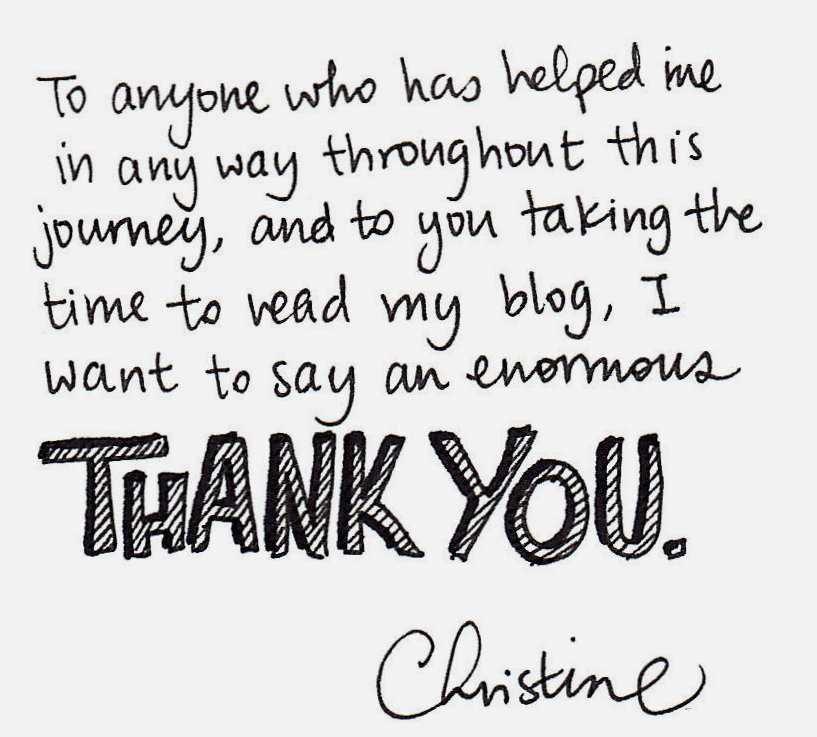 To anyone who has helped me
in any way throughout this
journey, and to you taking the
time to read my blog, I
want to say an enormous
THANK YOU.
Christine